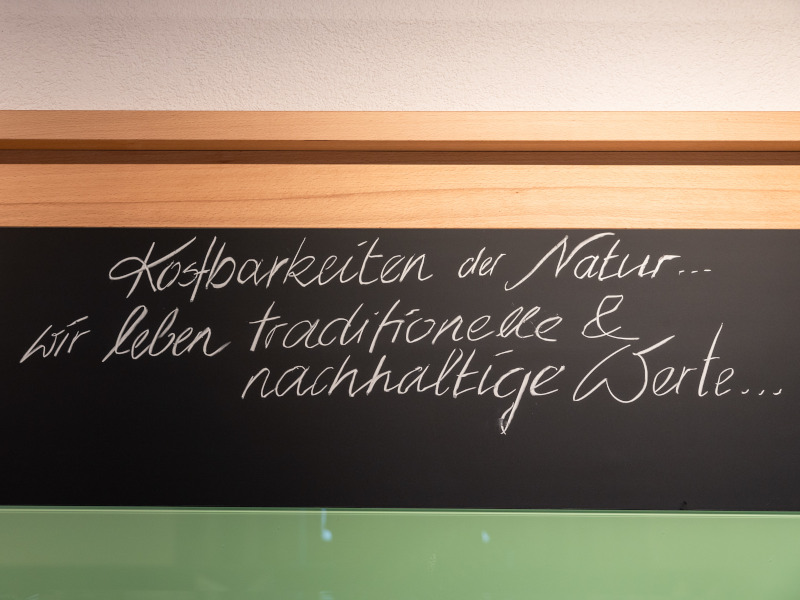 Kostbarkeiten der Natur...
wir leben traditionelle &
nachhaltige Werte...